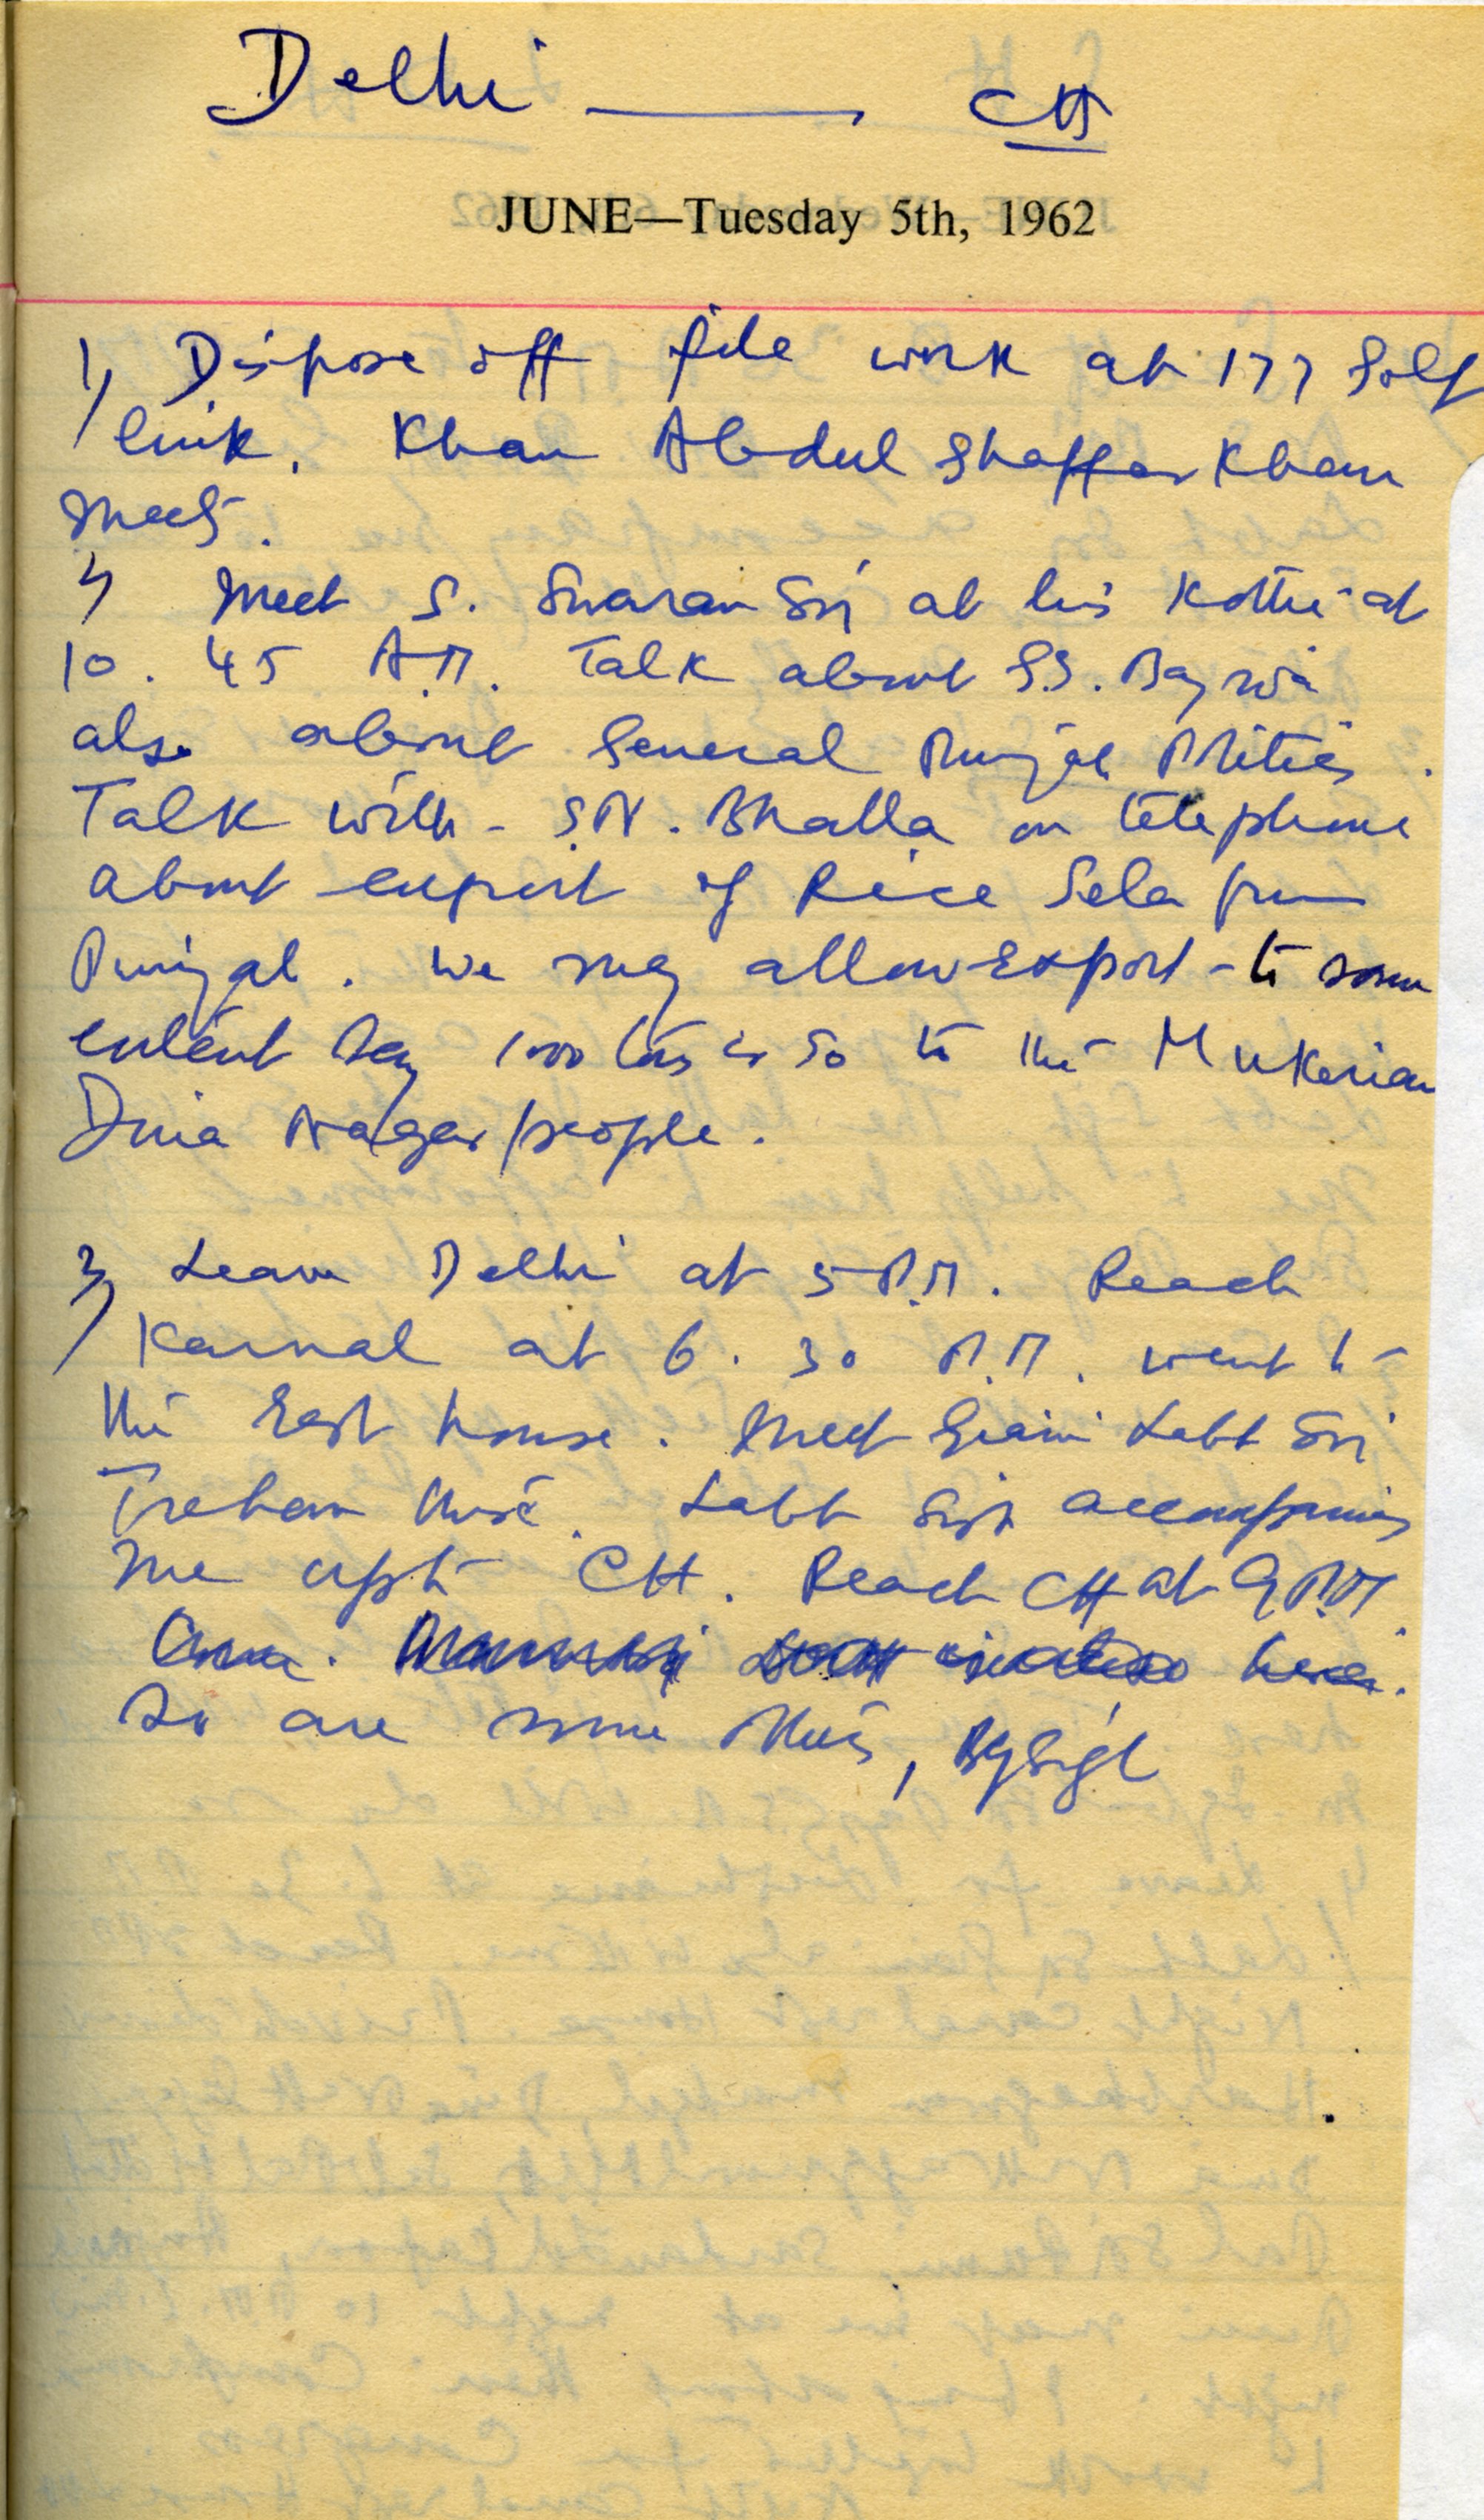 Delhi — CH
JUNE—Tuesday 5th, 1962
1) Dispose off file work at 177 Golf
link. Khan Abdul Ghaffar Khan
meets.
2) Meet S. Swaran Sri at his Kothi at
10.45 A.M. Talk about S.S.
also about General Punjab Politics.
Talk with - S.N. Bhalla on telephone
about export of Rice Sela from
Punjab. We may allow Export - to some
extent say 1000 tons or so to the Mukerian
Dina Nagar people.
3) Leave Delhi at 5 P.M. Reach
Karnal at 6.30 P.M. went to
the Rest house. Meet Giani Labh Sri
Trehan there. Labh Sigh accompanies
me upto CH. Reach CH at 9 P.M.
here.
So are some others,